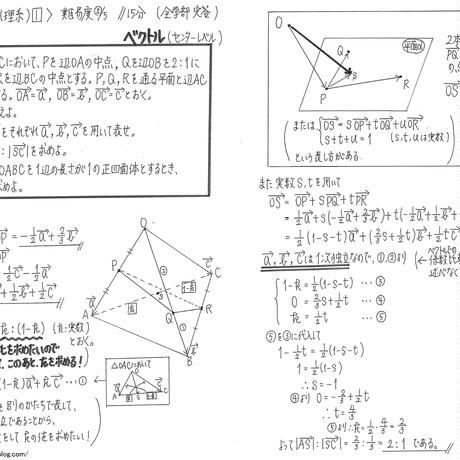 (理系) 1 > 難易度 9/5 15分 (全学部 実答)
ベクトル(センターレベル)
Cにおいて, Pを辺OAの中点, Qを辺OBを2:1に
Rを辺BCの中点とする。P, Q, Rを通る平面と辺AC
る。OA=a, OB=b, OC=cとおく。
えよ。
をそれぞれa, b, cを用いて表せ。
: |SC|を求めよ。
OABCを1辺の長さが1の正四面体とするとき,
求めよ。
OP = -1/2 a + 2/3 b
OP
-1/2 c - 1/2 a
+ 1/2 b + 1/2 c
k : (1-k) (k:実数)
とおく。
を求めたいので
て、このあと、kを求める!
(1-k)a + k c …①
△OACにおいて
O
P
A
a
Q
S
R
C
c
B
b
k
1-k
②
①
を2つのかたちで表して、
立であることから、
をして kの値を求めたい!
blog.com/
O
Q
S
P
R
平面α
または, OS = sOP + tOQ + uOR
s+t+u = 1 (s, t, uは実数)
という表し方がある。
また 実数 s, t を用いて
OS = OP + sPQ + tPR
= 1/2 a + s(-1/2 a + 2/3 b) + t(-1/2 a + 1/2 b +
= 1/2 (1-s-t)a + (2/3 s + 1/2 t)b + 1/2 t c
a, b, cは1次独立なので, ①, ②より
1-k = 1/2 (1-s-t) …③
0 = 2/3 s + 1/2 t …④
k = 1/2 t …⑤
⑤を③に代入して
1 - 1/2 t = 1/2 (1-s-t)
1 = 1/2 (1-s)
∴ s = -1
④より 0 = -2/3 + 1/2 t
∴ t = 4/3
⑤より ∴ k = 1/2 · 4/3 = 2/3
よって |AS| : |SC| = 2/3 : 1/3 = 2 : 1 である。